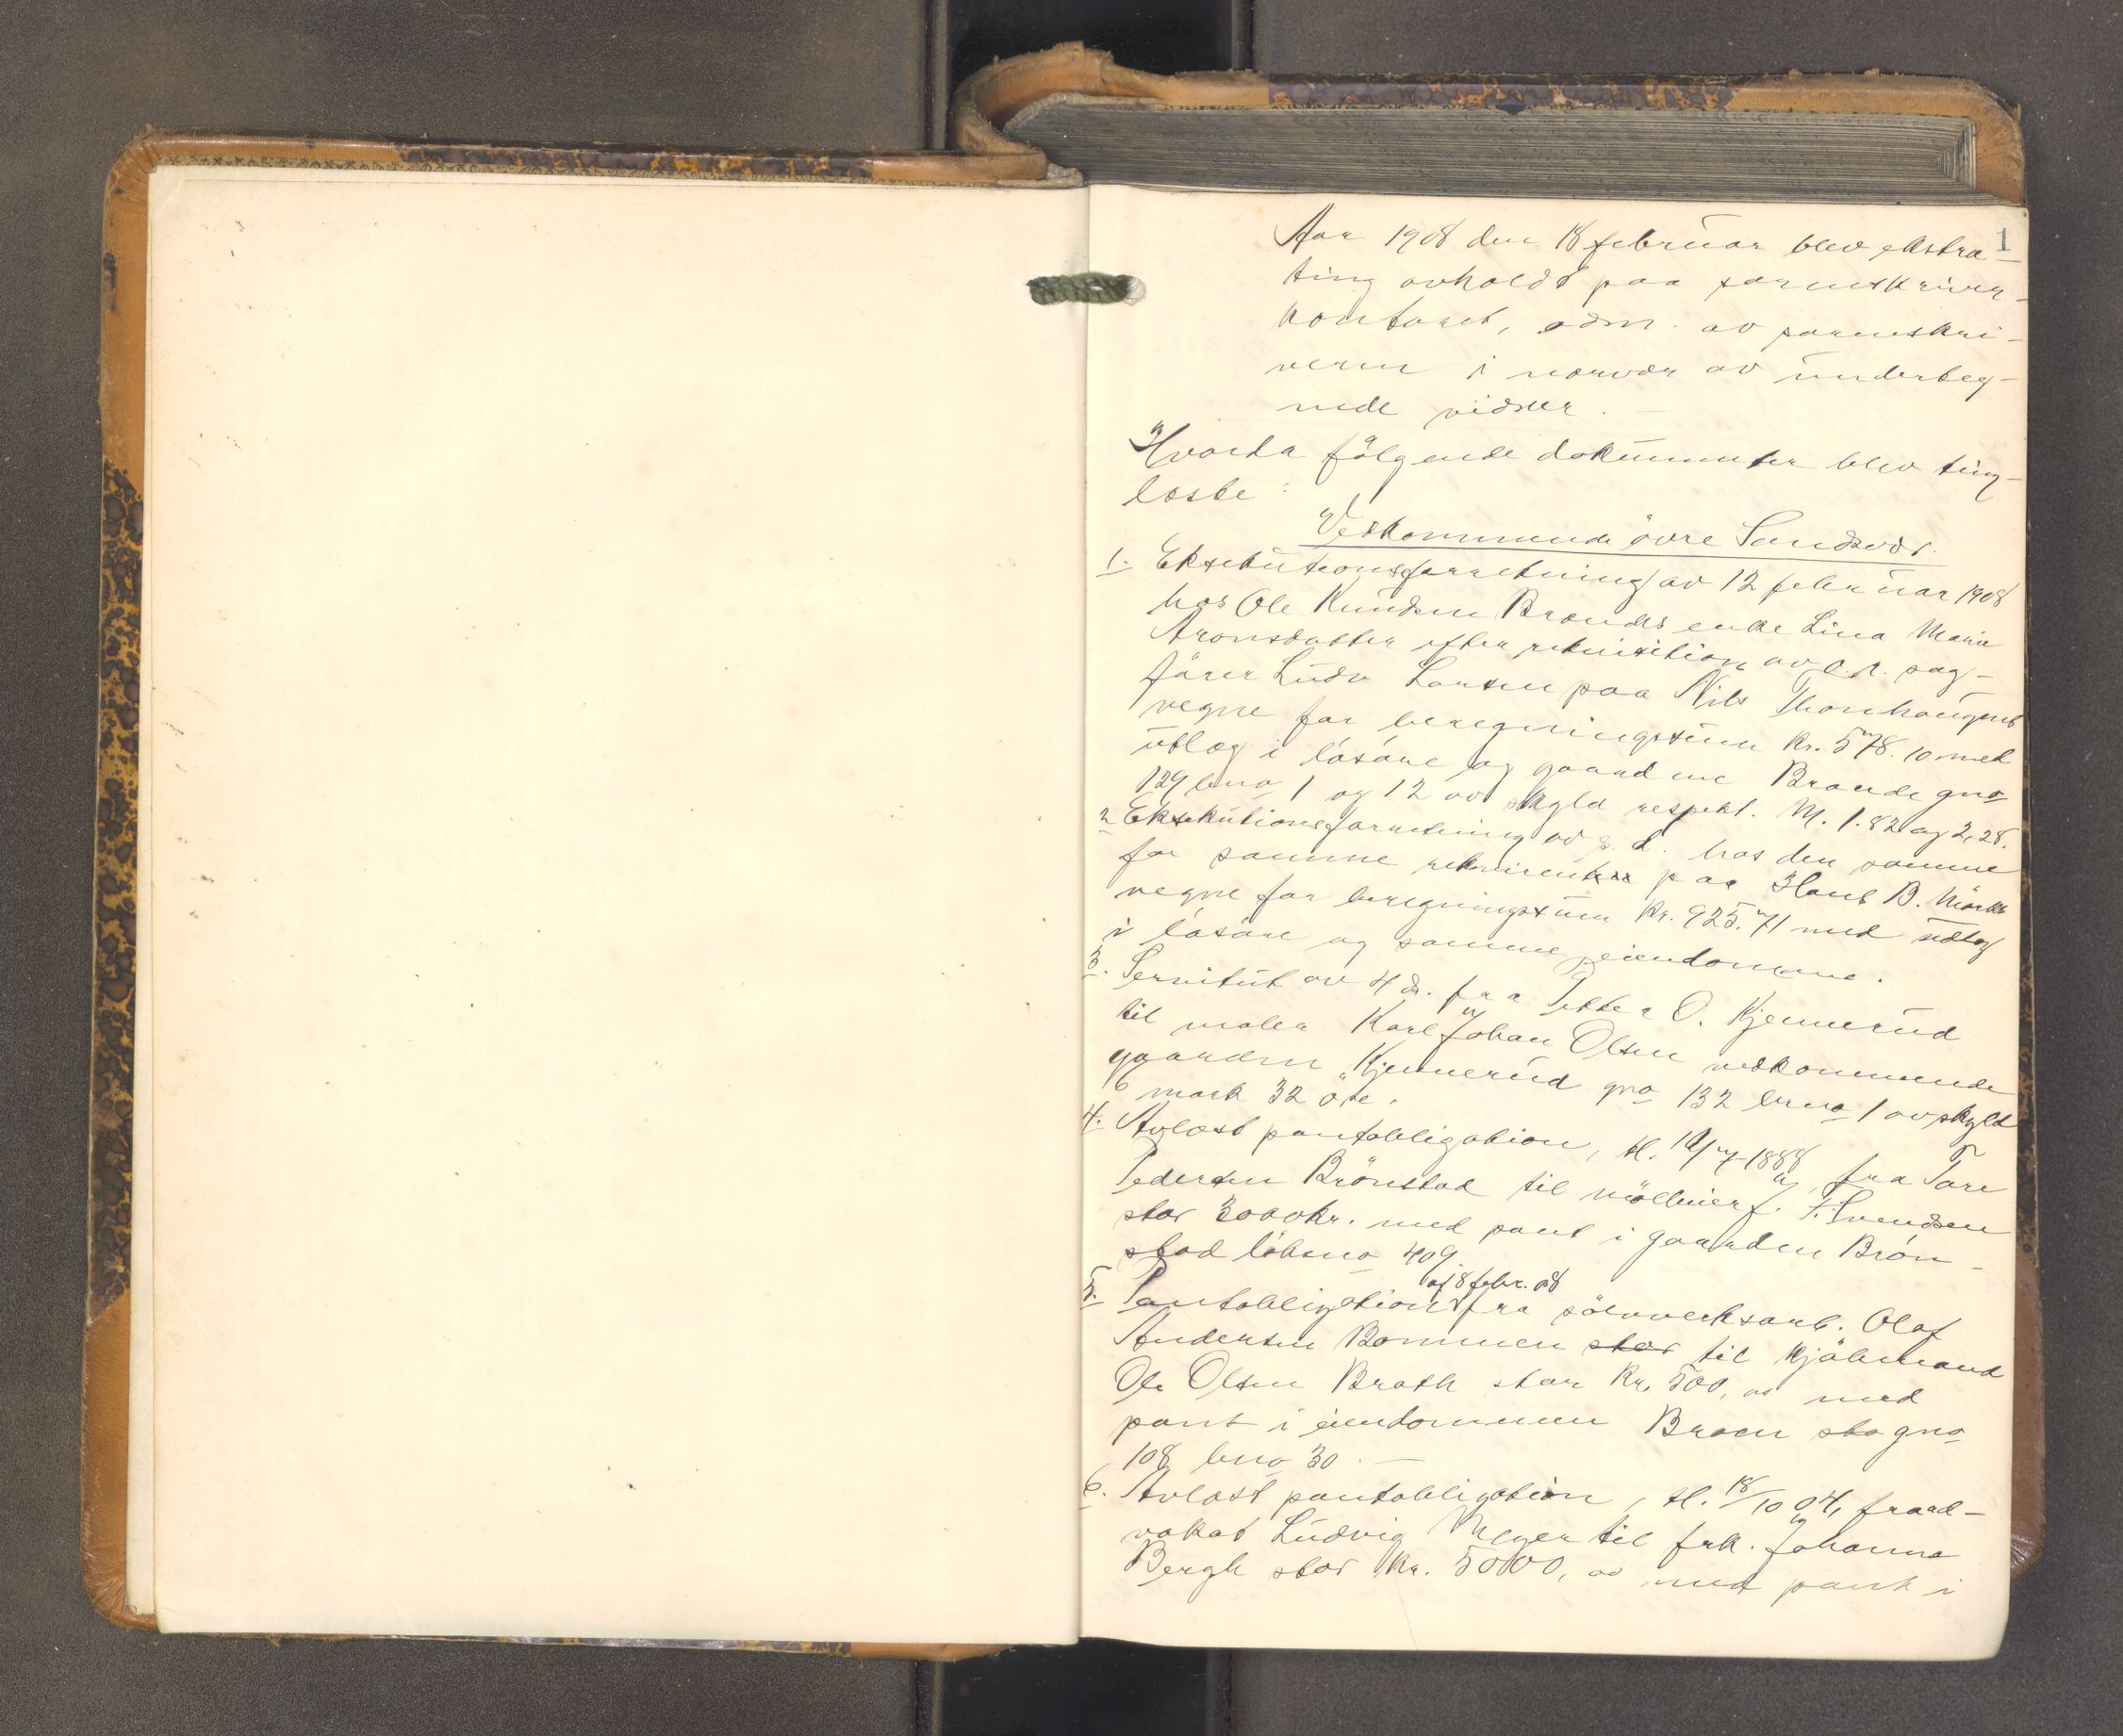 1
Aar 1908 den 18 februar blev ekstra-
ting avholdt paa sorenskriver-
kontoret, adm. av sorenskri-
veren i nærvær av underteg-
nede vidner. —
Hvorda følgende dokumenter blev ting-
læste:
Vedkommende øvre Sandsvær.
1. Eksekutionsforretning av 12 februar 1908
hos Ole Knudsen Brændes enke Lina Marie
Aronsdatter efter rekvisition av o.r. sag-
fører Ludv Larsen paa Nils Thorshaugens
vegne for beregningssum kr. 578.10 med
utlæg i løsøre og gaardene Brænde gno
129 bno 1 og 12 av skyld respekt. M. 1.82 og 2,28.
2 Eksekutionsforretning av s. d. hos den samme
for samme rekvirent paa Hans B. Mørks
vegne for beregningssum kr. 925.71 med utlæg
i løsøre og samme eiendomme.
3. Servitut av 4 ds. fra Petter O. Kjennerud
til maler Karl Johan Olsen vedkommende
gaarden Kjennerud gno 132 bno 1 av skyld
6 mark 32 øre.
4. Avlæst pantobligation, tl. 10/7 1888, fra Tore
Pedersen Brønstad til mølleier J. F. Svendsen
stor 3000 kr. med pant i gaarden Brøn-
stad løbeno 409.
af 8 febr. 08
5. Pantobligation fra sølvverksarb. Olaf
Andersen Bommen stor til kjøbmand
Ole Olsen Brath stor kr. 500, oo med
pant i eiendommen Braen sto gno
108 bno 30. —
6. Avlæst pantobligation, tl. 18/10 04, fra ad-
vokat Ludvig Meyer til frk. Johanna
Bergh stor kr. 5000, oo med pant i